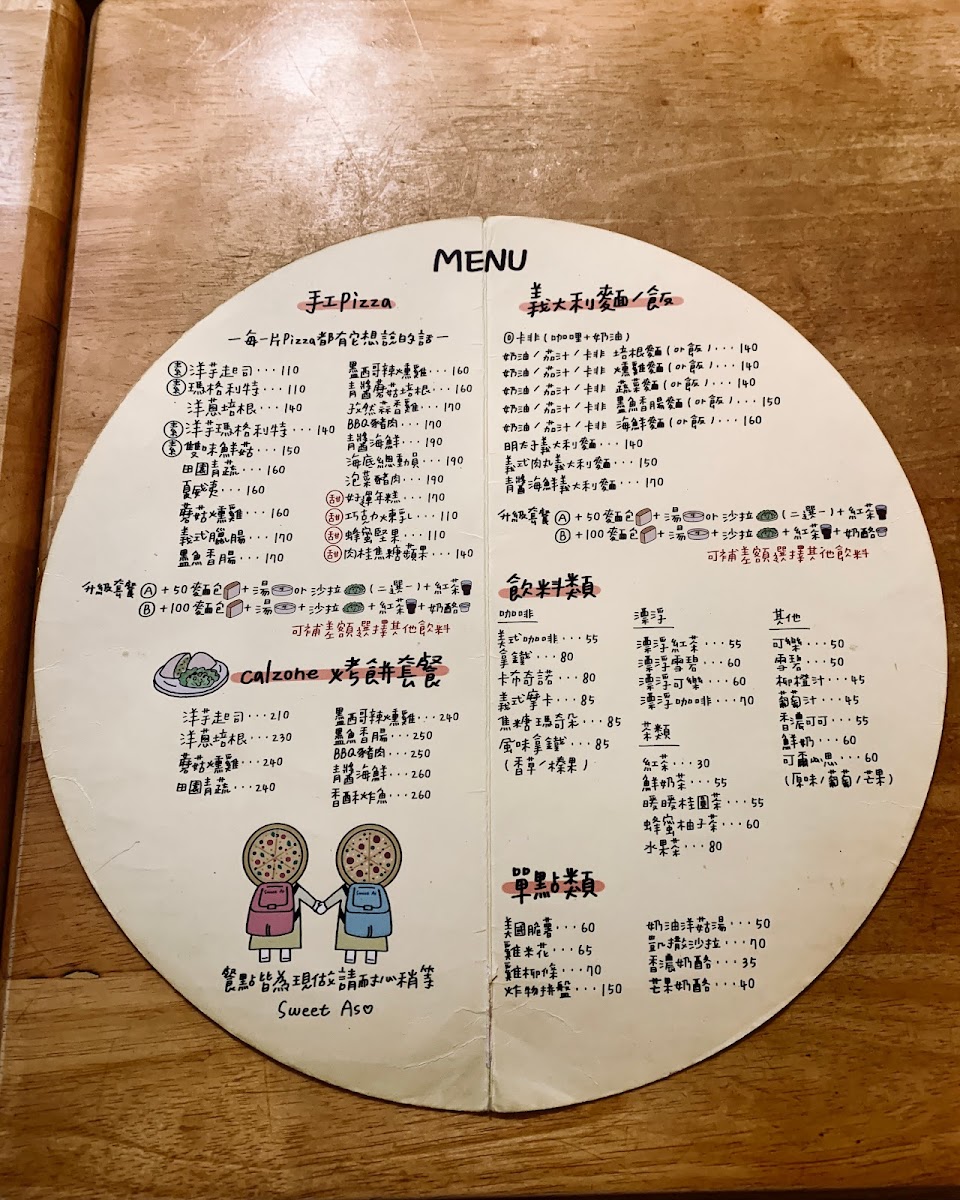 MENU
手工pizza
—每一片Pizza都有它想說的話—
素 洋芋起司···110
素 瑪格利特···110
洋蔥培根···140
素 洋芋瑪格利特···140
素 雙味鮮菇···150
田園青蔬···160
夏威夷···160
蘑菇燻雞···160
義式臘腸···170
墨魚香腸···170
墨西哥辣燻雞···160
青醬蘑菇培根···160
孜然蒜香雞···170
BBQ豬肉···170
青醬海鮮···190
海底總動員···190
泡菜豬肉···190
甜 好運年糕···170
甜 巧克力煉乳···110
甜 蜂蜜堅果···110
甜 肉桂焦糖蘋果···140
升級套餐 Ⓐ +50 麵包+湯or沙拉(二選一)+紅茶
Ⓑ +100 麵包+湯+沙拉+紅茶+奶酪
可補差額選擇其他飲料
calzone 烤餅套餐
洋芋起司···210
洋蔥培根···230
蘑菇燻雞···240
田園青蔬···240
墨西哥辣燻雞···240
墨魚香腸···250
BBQ豬肉···250
青醬海鮮···260
香酥炸魚···260
Sweet As
Sweet As
餐點皆為現做請耐心稍等
Sweet As♡
義大利麵/飯
◎卡非(咖哩+奶油)
奶油/茄汁/卡非 培根麵(or飯)···140
奶油/茄汁/卡非 燻雞麵(or飯)···140
奶油/茄汁/卡非 蔬菜麵(or飯)···140
奶油/茄汁/卡非 墨魚香腸麵(or飯)···150
奶油/茄汁/卡非 海鮮麵(or飯)···160
明太子義大利麵···140
義式肉丸義大利麵···150
青醬海鮮義大利麵···170
升級套餐 Ⓐ +50 麵包+湯or沙拉(二選一)+紅茶
Ⓑ +100 麵包+湯+沙拉+紅茶+奶酪
可補差額選擇其他飲料
飲料類
咖啡
義式咖啡···55
拿鐵···80
卡布奇諾···80
義式摩卡···85
焦糖瑪奇朵···85
風味拿鐵···85
(香草/榛果)
漂浮
漂浮紅茶···55
漂浮雪碧···60
漂浮可樂···60
漂浮咖啡···70
茶類
紅茶···30
鮮奶茶···55
暖暖桂圓茶···55
蜂蜜柚子茶···60
水果茶···80
其他
可樂···50
雪碧···50
柳橙汁···45
葡萄汁···45
香濃可可···55
鮮奶···60
可爾必思···60
(原味/葡萄/芒果)
單點類
美國脆薯···60
雞米花···65
雞柳條···70
炸物拼盤···150
奶油洋菇湯···50
凱撒沙拉···70
香濃奶酪···35
芒果奶酪···40